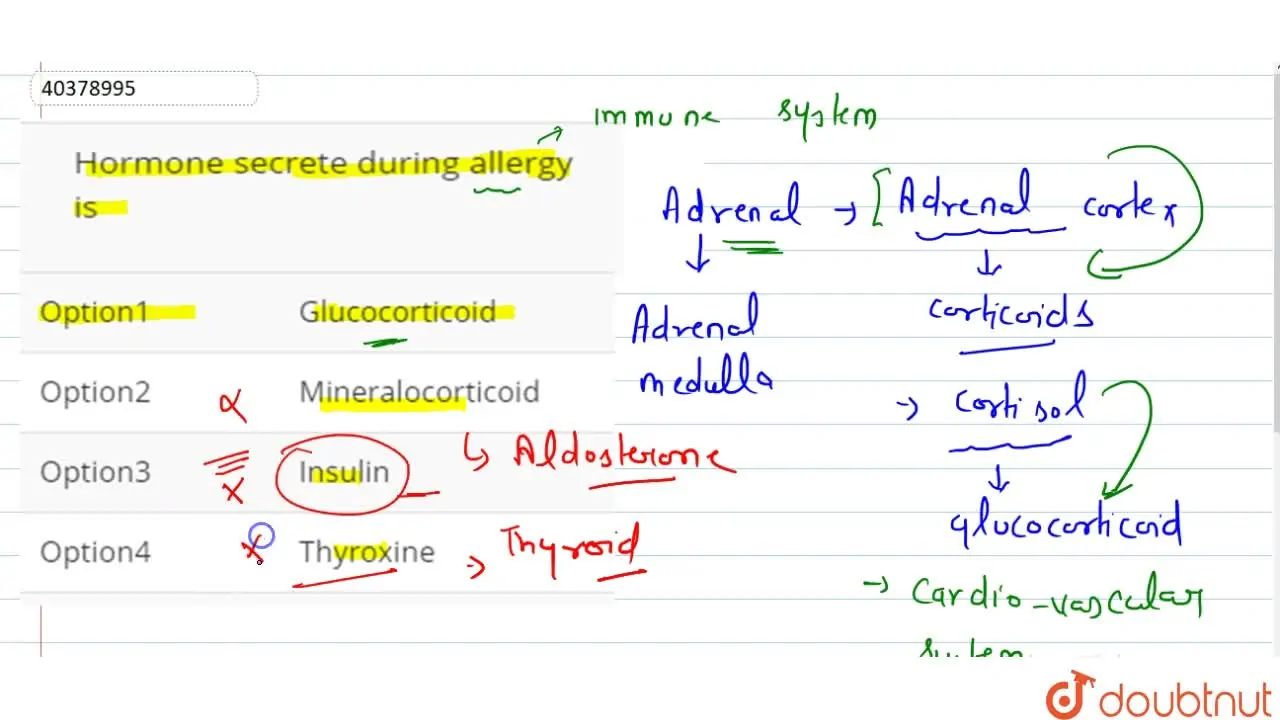 40378995
Immune system
Hormone secrete during allergy
is
Adrenal → [Adrenal cortex
↓ ↓
Option1 Glucocorticoid
corticoids
Adrenal
medulla
Option2 α Mineralocorticoid
→ Cortisol
↳ Aldosterone
Option3 x Insulin
↓
glucocorticoid
Option4 x Thyroxine → Thyroid
→ Cardio-vascular
system
doubtnut